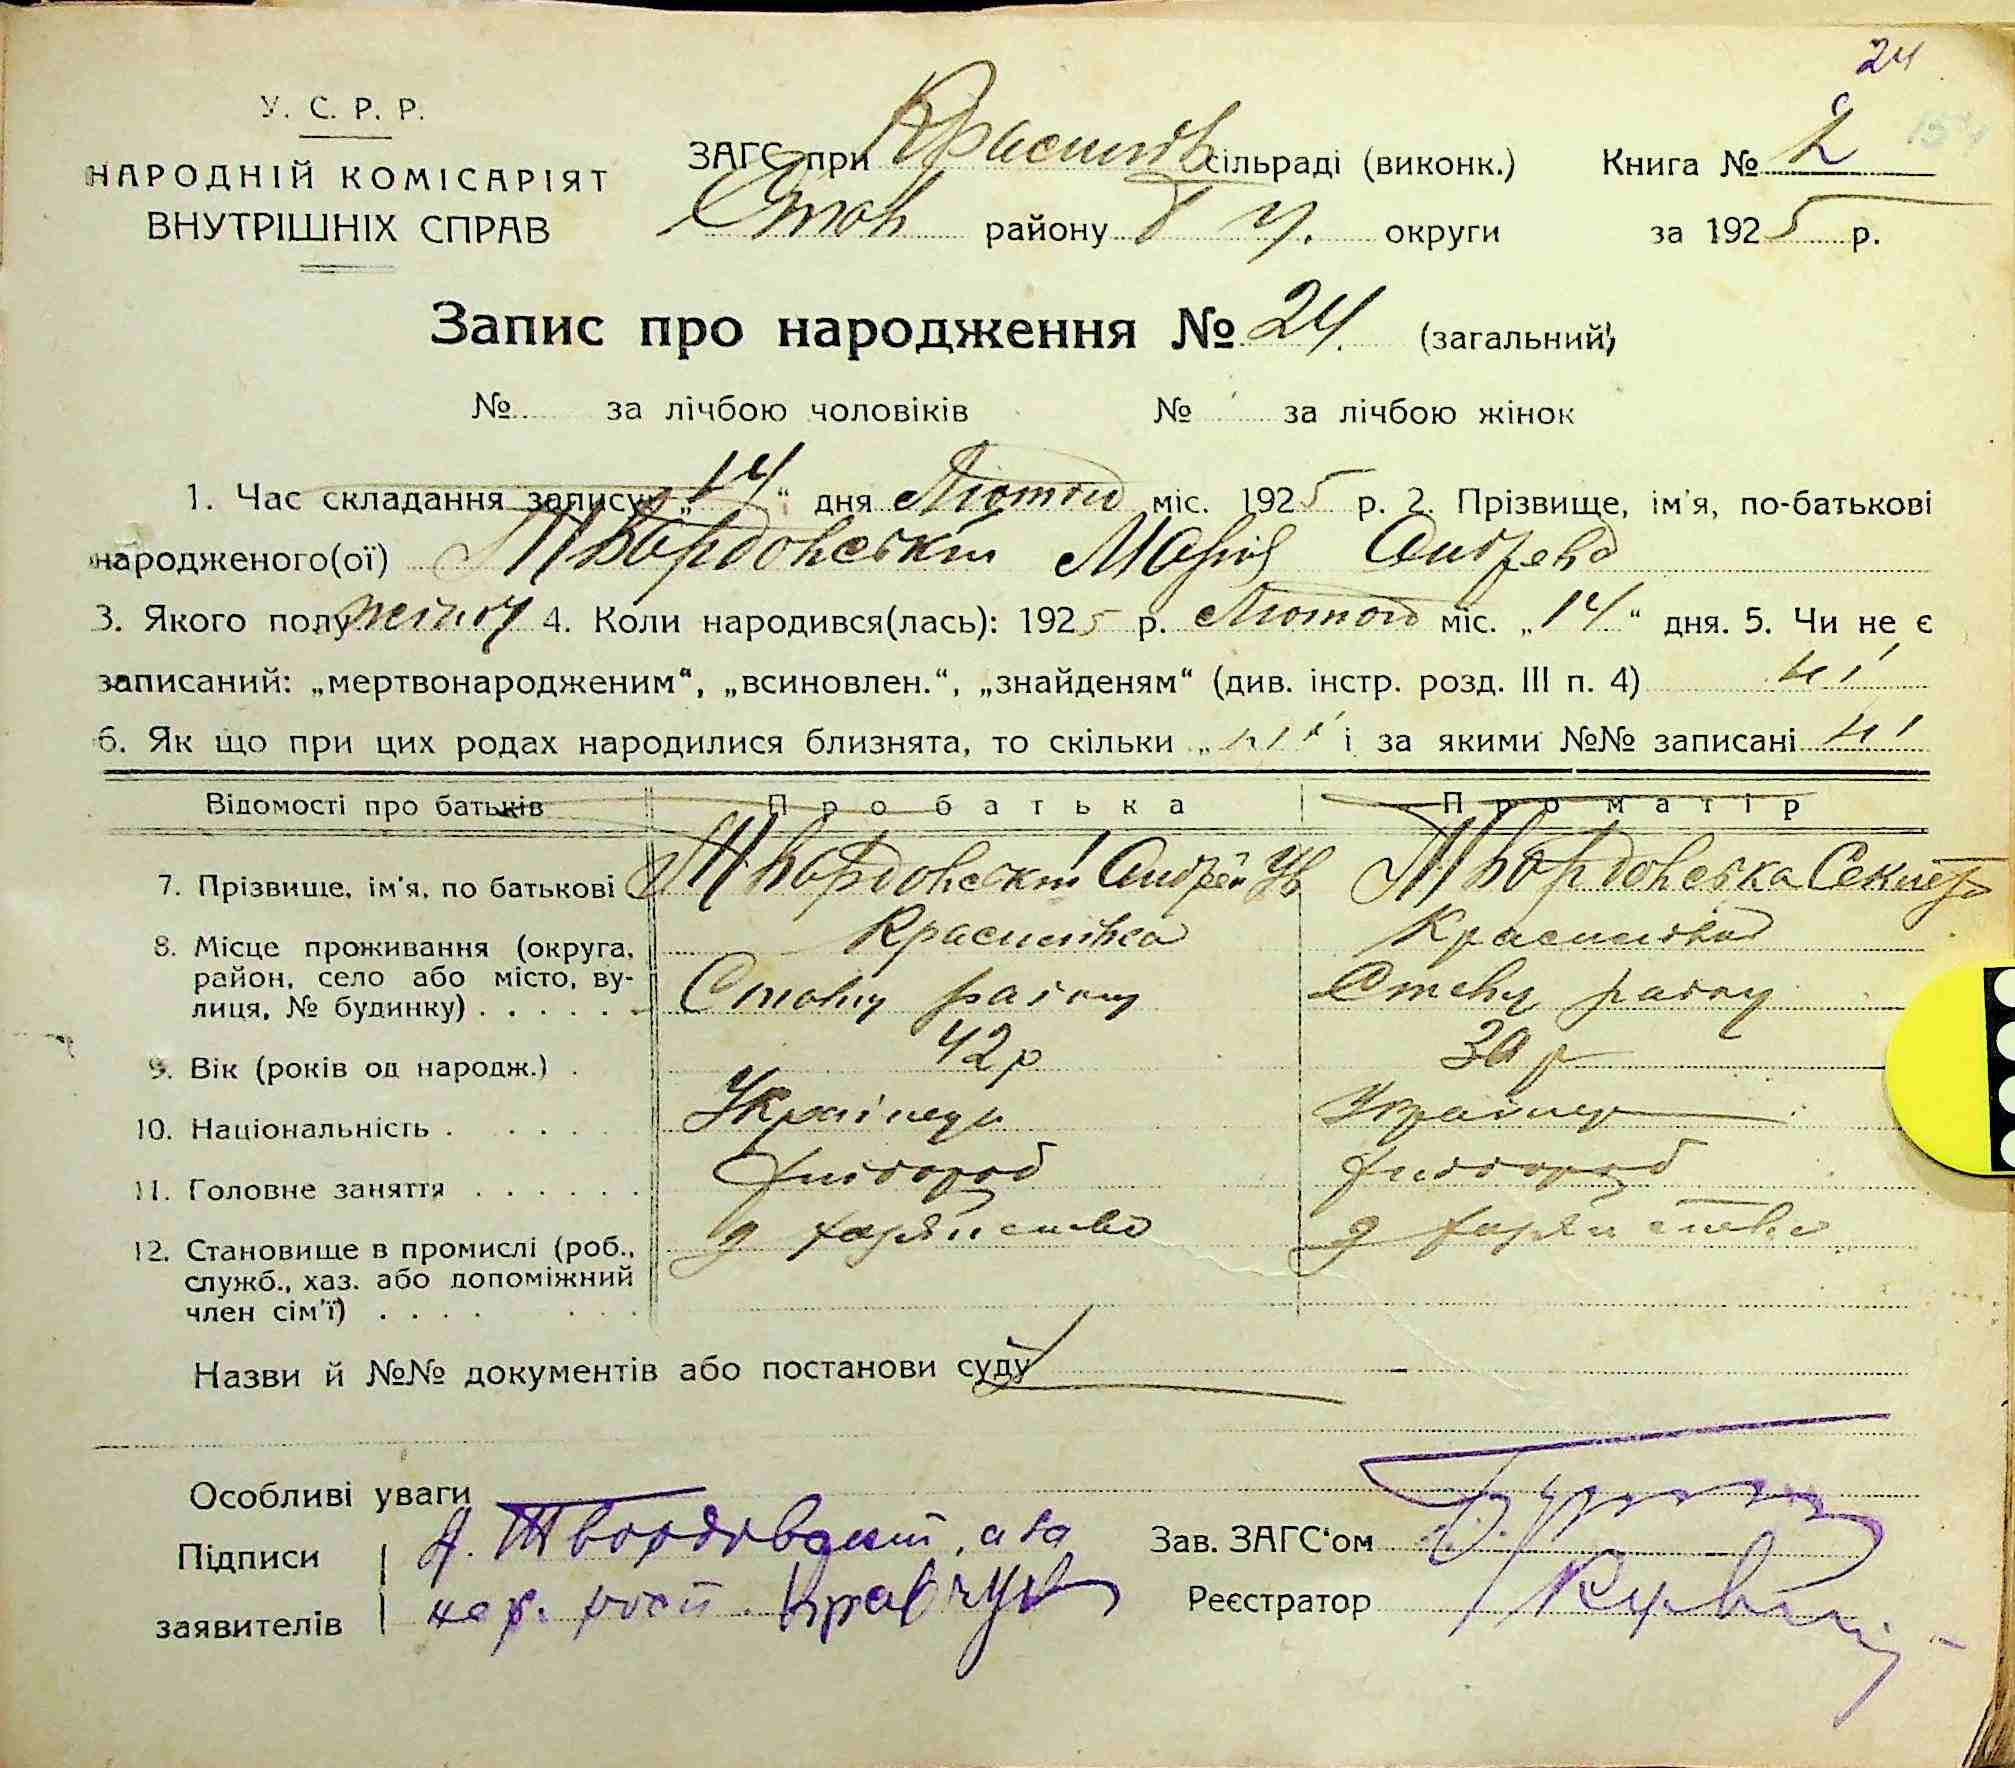 24
У. С. Р. Р.
НАРОДНІЙ КОМІСАРІЯТ
ВНУТРІШНІХ СПРАВ
ЗАГС при Красилів сільраді (виконк.) Книга № 2
району У. округи за 1925 р.
Запис про народження № 24. (загальний)
№ за лічбою чоловіків № за лічбою жінок
1. Час складання запису „14“ дня Лютого міс. 1925 р. 2. Прізвище, ім'я, по-батькові
народженого(ої) Твордовськ Марія Андрева
3. Якого полу жіноч 4. Коли народився(лась): 1925 р. Лютого міс. „14“ дня. 5. Чи не є
записаний: „мертвонародженим“, „всиновлен.“, „знайденям“ (див. інстр. розд. III п. 4) ні
6. Як що при цих родах народилися близнята, то скільки „ні і за якими №№ записані ні
Відомості про батьків Про батька Про матір
7. Прізвище, ім'я, по батькові Твордовський Андрей Ів Твордовська Секлета
8. Місце проживання (округа, Красилівка Красилівка
район, село або місто, ву- району району
лиця, № будинку)
9. Вік (років од народж.) 42 р 30 р
10. Національність Українец Українец
11. Головне заняття хлібороб хлібороб
12. Становище в промислі (роб.,
служб., хаз. або допоміжний
член сім'ї)
Назви й №№ документів або постанови суду
Особливі уваги
Підписи А. Твордовский, а за Зав. ЗАГС'ом
заявителів Кравчук Реєстратор